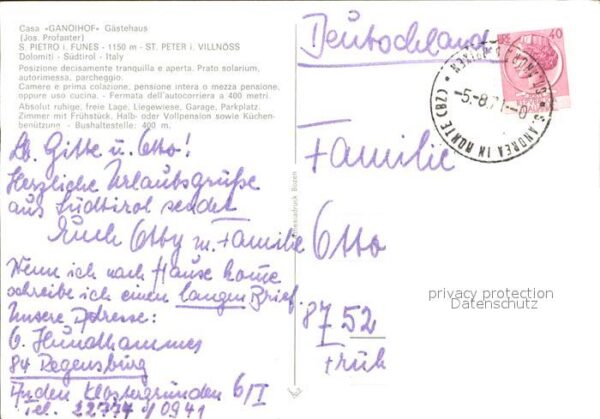 Casa «GANOIHOF» Gästehaus
(Jos. Profanter)
S. PIETRO i. FUNES - 1150 m - ST. PETER i. VILLNÖSS
Dolomiti - Südtirol - Italy
Posizione decisamente tranquilla e aperta. Prato solarium,
autorimessa, parcheggio.
Camere e prima colazione, pensione intera o mezza pensione,
oppure uso cucina. - Fermata dell'autocorriera a 400 metri.
Absolut ruhige, freie Lage, Liegewiese, Garage, Parkplatz.
Zimmer mit Frühstück. Halb- oder Vollpension sowie Küchen-
benützung - Bushaltestelle: 400 m.
Lb. Gitte u. Otto!
Herzliche Urlaubsgrüße
aus Südtirol sendet
Euch Otty m. Familie
Wenn ich nach Hause kome
schreibe ich einen langen Brief.
Unsere Adresse:
G. Hundhammer
84 Regensburg
An den Klostergründen 6/I
Tel. 22777 / 0941
Bozen
Deutschland
40
S. ANDREA IN MONTE (BZ)
-5.-8.71.-0
Familie
Otto
8752
Früh
privacy protection
Datenschutz